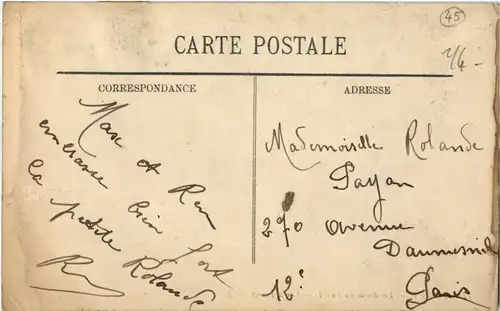 45
7/6-
CARTE POSTALE
CORRESPONDANCE
Max et Ren
embrasse bien fort
la petite Rolande
ADRESSE
Mademoiselle Rolande
Payan
270 avenue
Daumesnil
12e Paris